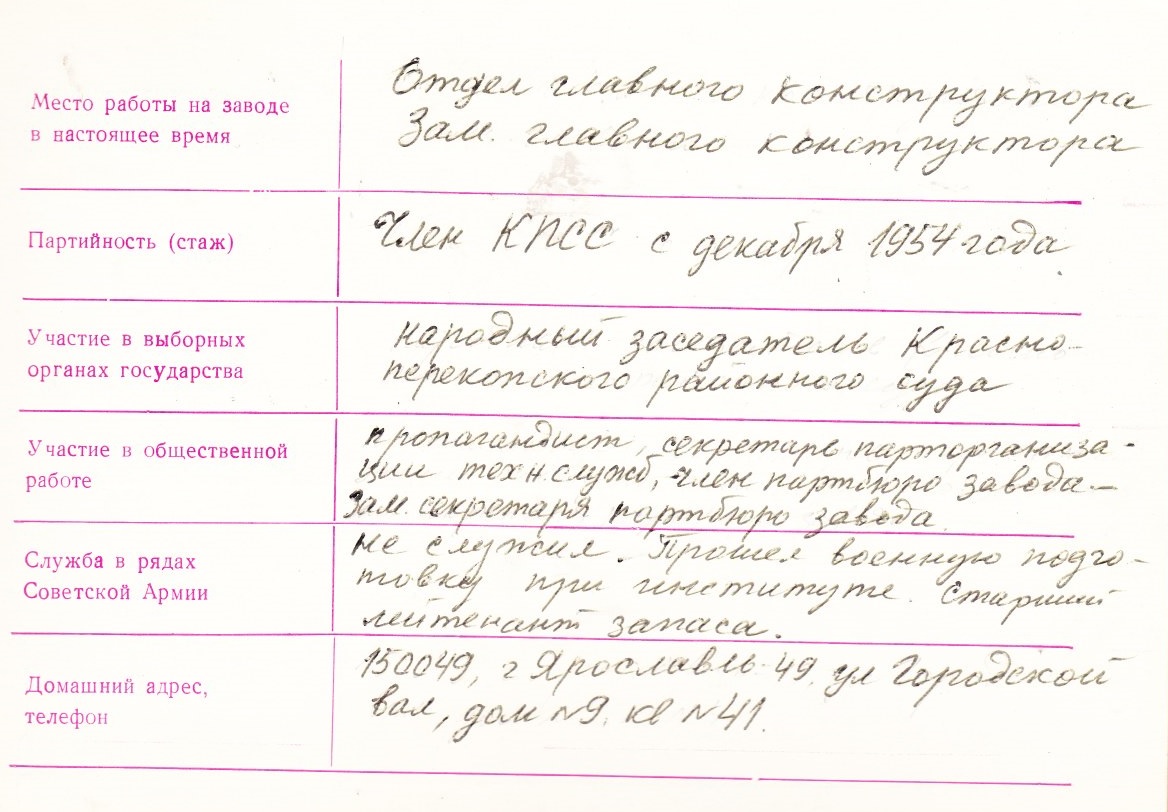 Место работы на заводе
в настоящее время
Отдел главного конструктора
Зам. главного конструктора
Партийность (стаж)
Член КПСС с декабря 1954 года
Участие в выборных
органах государства
народный заседатель Красно-
перекопского районного суда
Участие в общественной
работе
пропагандист, секретарь парторганиза-
ции техн служб, член партбюро завода -
зам. секретаря партбюро завода.
Служба в рядах
Советской Армии
не служил. Прошел военную подго-
товку при институте. Старший
лейтенант запаса.
Домашний адрес,
телефон
150049, г Ярославль-49, ул Городской
вал, дом №9, кв №41.